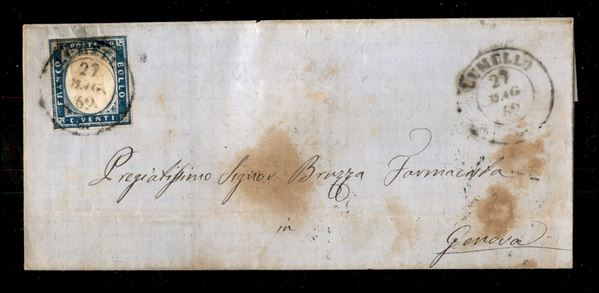 FRANCO
POSTE
BOLLO
C. VENTI
27
MAG
62
LUMELLO
27
MAG
62
Pregiatissimo Signor Bruzza Farmacista
in
Genova